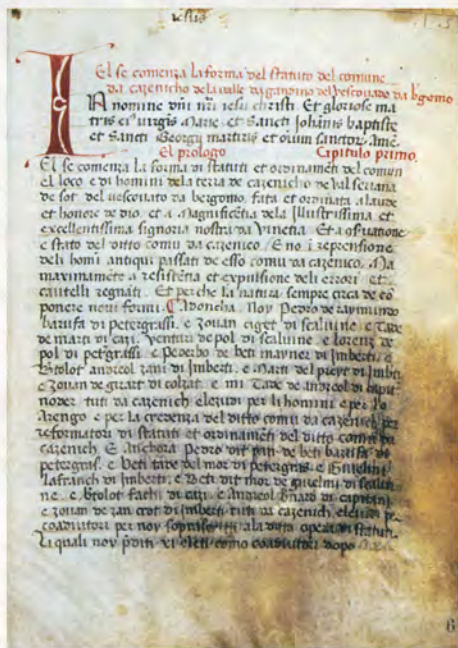 iesus
El se comenza la forma del statuto del comune
da cazenicho de la valle da gandino del vescovado da bgomo
IN nomine dñi nrĩ iesu christi. Et gloriose ma
tris ei' virgis Marie. et Sancti Iohanis baptiste
et Sancti Georgii martiris et oium sanctor. Amẽ.
El prologo Capitulo primo.
El se comenza la forma di statuti et ordinamẽti del comun
el loco e di homini dela terra de cazenicho de val seriana
de sot del vescovato da bergomo. fata et ordinata a laude
et honore de dio. et a Magnificẽtia dela Illustrissima et
excellentissima signoria nostra da Vinetia. Et a cõservatione
e stato del ditto comũ da cazenico. E no ĩ reprensione
deli homĩ antiqui passati de esso comu da cazenico. Ma
maximamẽte a resistẽtia et expulsione deli errori et
cautelli regnati. Et perche la natura sempre circa de cõ
ponere novi formi. Cadoncha. Noy Pedro de raymundo
barufa di petergrassi. e zouan ciget di scaluine. e Tade
de marti di cazi. venturi de pol di scaluine. e lorenz de
pol di pet'grassi. e Pederbo de beti mayner di Imberti. e
Btolot andreol zani di Imberti. e Marti del pieyt di Imbti
e zouan de girart di colzat. e mi Tade de andreol di capit
noder tuti da cazenich elezudi per li homini e per lo
Arengo e per la credenza del ditto comũ da cazenich per
reformatori di statuti et ordinamẽti del ditto comũ da
cazenich. E Anchora Pedro dit pan de beti barufa di
petergras. e beti tade del mor di petergras. e Guielmi
lafranch di Imberti. e Beti dit mor de guielmi di scalui
ne. e Btolot fachi di cazi. e Andreol Gnard di capitani.
e zouan de zan crot di Imberti tuti da cazenich elezudi p
coadiutori per noy soprascritti ala ditta opera di statuti.
Li quali noy p̃diti xi eletti como coadiutori dopo